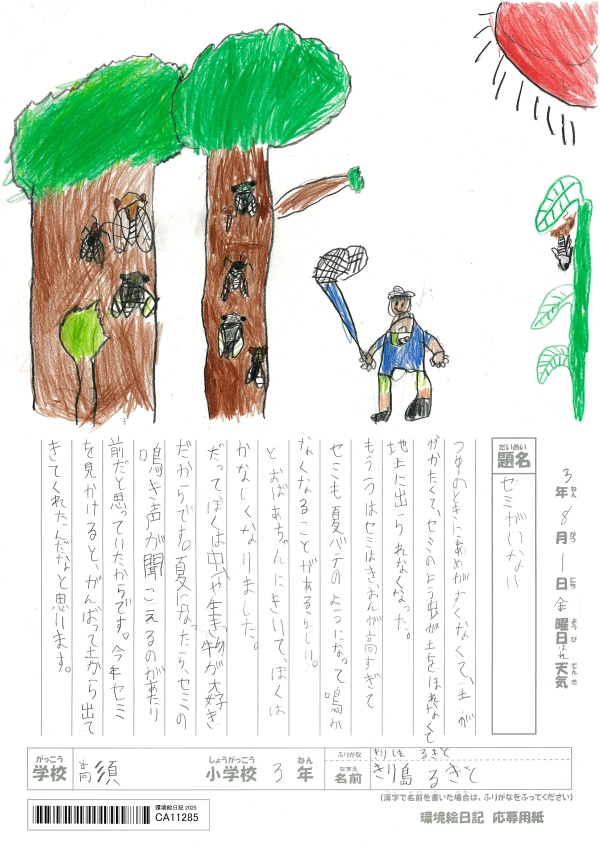 3年ねん 8月がつ 1日にち 金曜日ようび はれ天気てんき
だいめい
題名
セミがいない
つゆのときにあめがすくなくて、土が
かたくて、セミのよう虫が土をほれなくて
地上に出られなくなった。
もう一つはセミはきおんが高すぎて
セミも夏バテのようになって鳴か
なくなることがあるらしい。
とおばあちゃんにきいて、ぼくは
かなしくなりました。
だってぼくは虫や生き物が大好き
だからです。夏になったら、セミの
鳴き声が聞こえるのがあたり
前だと思っていたからです。今年セミ
を見かけると、がんばって土から出て
きてくれたんだなと思います。
がっこう
学校 高須 しょうがっこう
小学校 3 ねん
年
ふりがな きりしま るきと
なまえ
名前 きり島 るきと
(漢字で名前を書いた場合は、ふりがなをふってください)
環境絵日記 2025
CA11285
環境絵日記 応募用紙